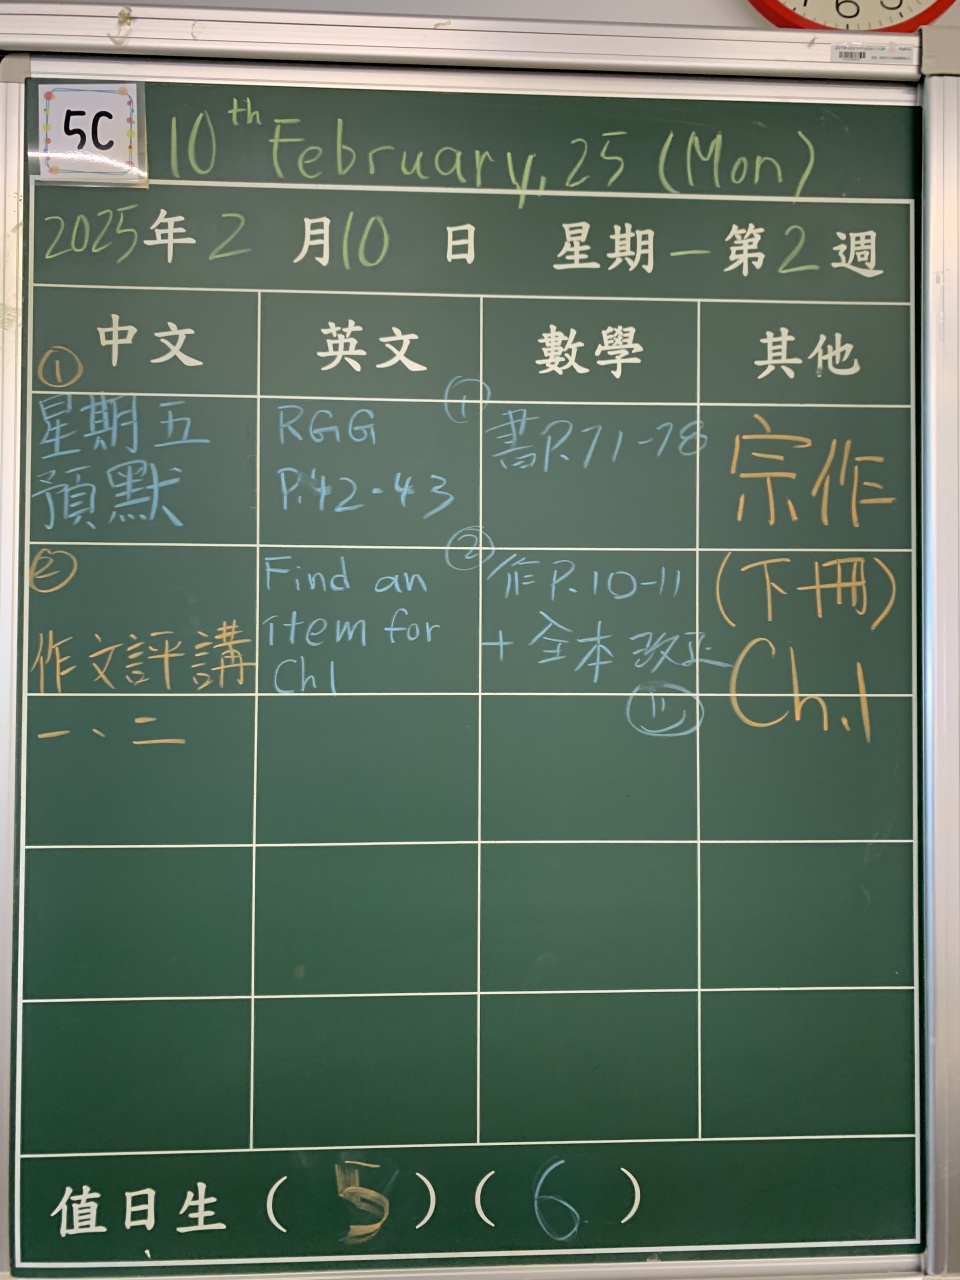 5C
10th February, 25 (Mon)
2025年2月10日 星期一第2週
中文 英文 數學 其他
①
星期五
預默
②
作文評講
一、二
RGG
P.42-43
Find an
item for
Ch1
①
書P.71-78
②
作P.10-11
+全本改正
宗作
(下冊)
Ch.1
值日生(5)(6)